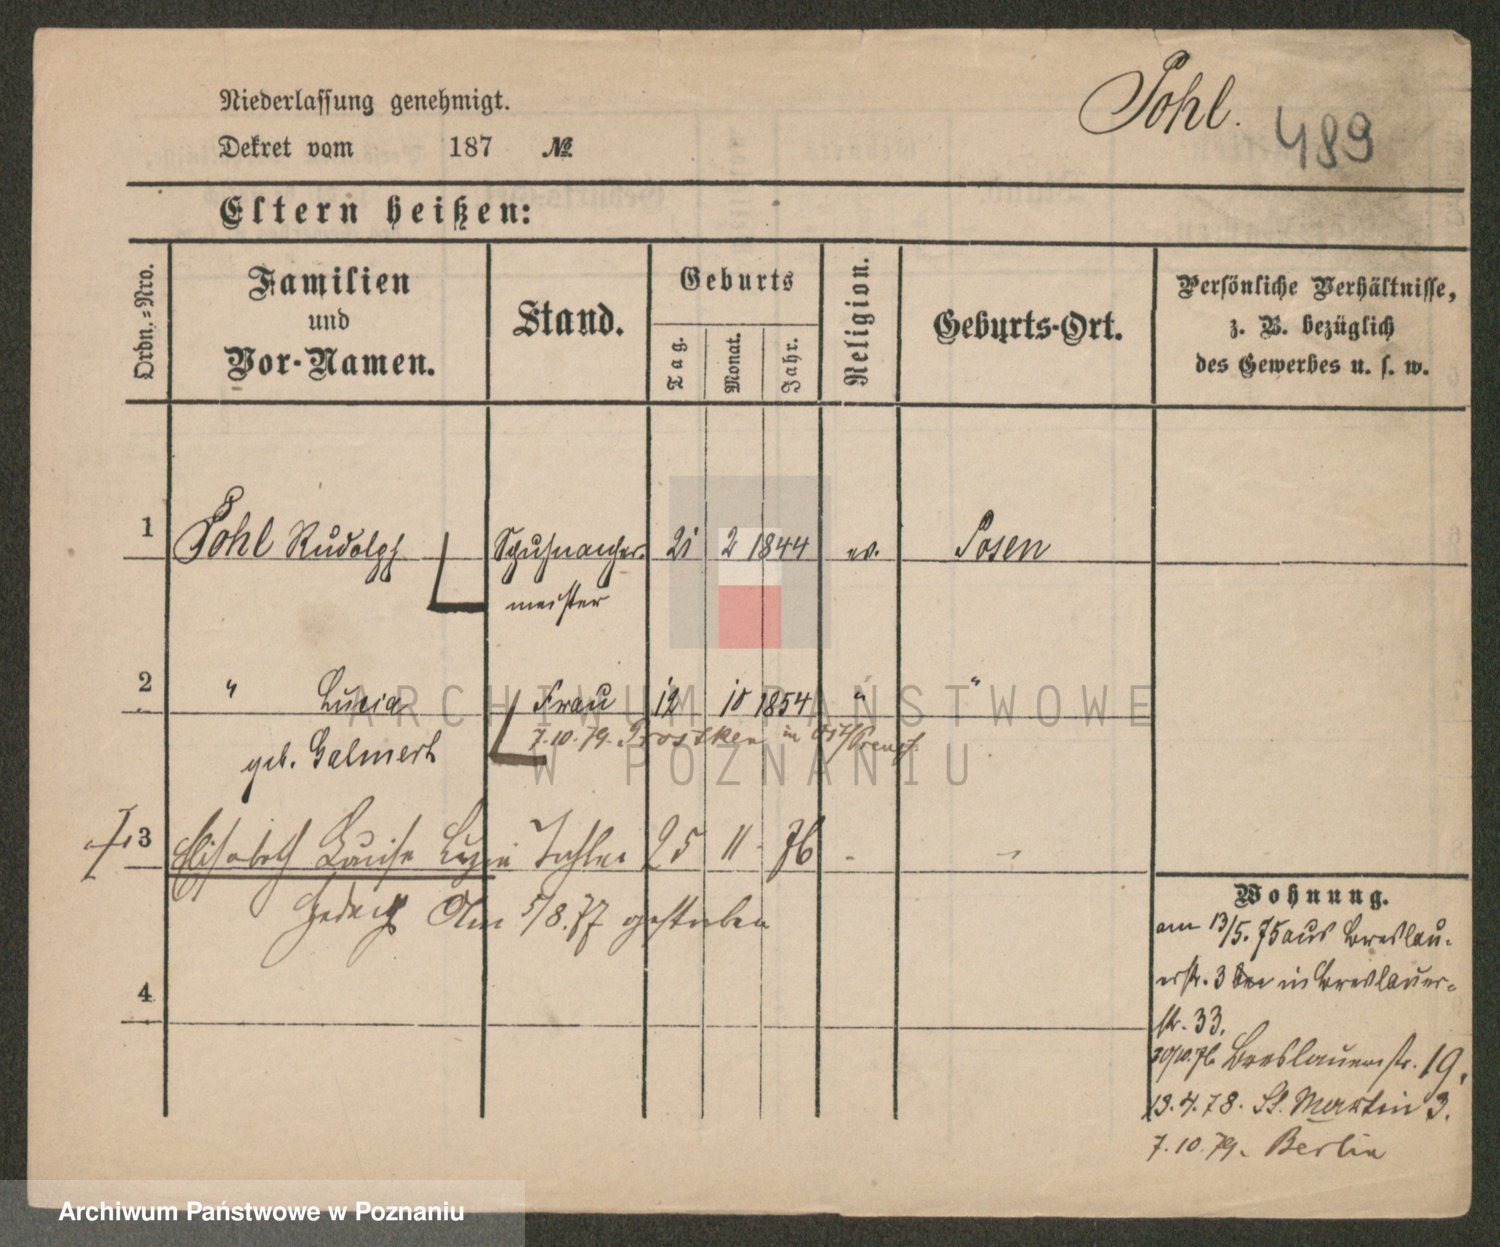 Niederlassung genehmigt.
Pohl. 489
Dekret vom 187 №
Eltern heißen:
Ordn.-Nro.
Familien
und
Vor-Namen.
Stand.
Geburts
Tag.
Monat.
Jahr.
Religion.
Geburts-Ort.
Persönliche Verhältnisse,
z. B. bezüglich
des Gewerbes u. s. w.
1 Pohl Rudolph Schuhmacher- 21 2 1844 ev. Posen
meister
2 " Lucia Frau 12 10 1854 " "
7.10.79. Prostken in Ost/Preuß.
geb. Galmert
3 Elisabeth Louise Tochter 25 11 76 - -
Am 5/8.77 gestorben
4
Wohnung.
am 13/5.75 aus Breslau-
erstr. 3 in Breslauer-
str. 33.
Breslauerstr. 19.
13.4.78. St. Martin 3.
7.10.79. Berlin
ARCHIWUM PAŃSTWOWE
W POZNANIU
Archiwum Państwowe w Poznaniu